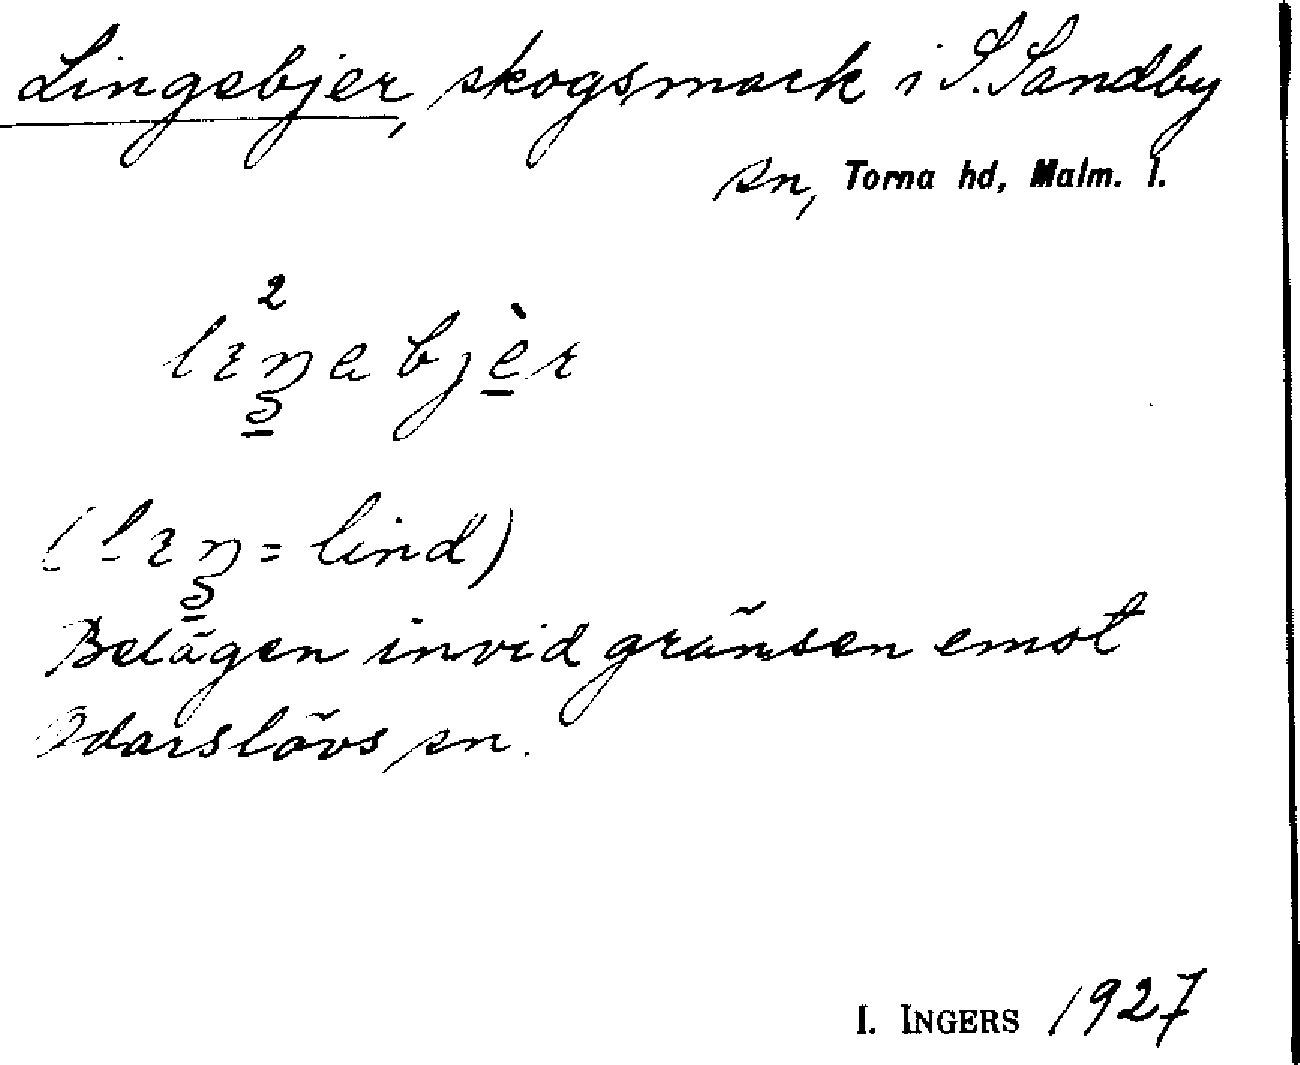 Lingebjer, skogsmark i S. Sandby
sn, Torna hd, Malm. l.
(= lind)
Belägen invid gränsen emot
Odarslövs sn.
I. INGERS 1927